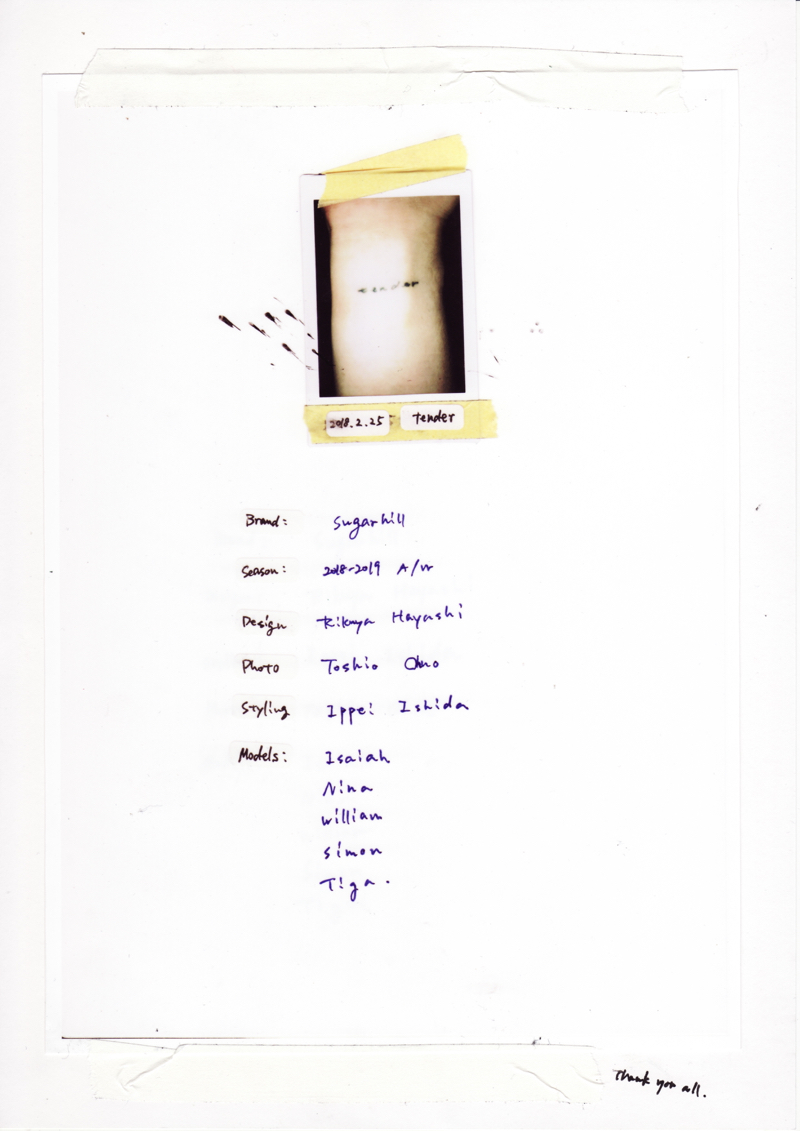 tender
2018.2.25 Tender
Brand: Sugarhill
Season: 2018-2019 A/W
Design Rikuya Hayashi
Photo Toshio Ohno
Styling Ippei Ishida
Models: Isaiah
Nina
William
Simon
Tiga.
Thank you all.